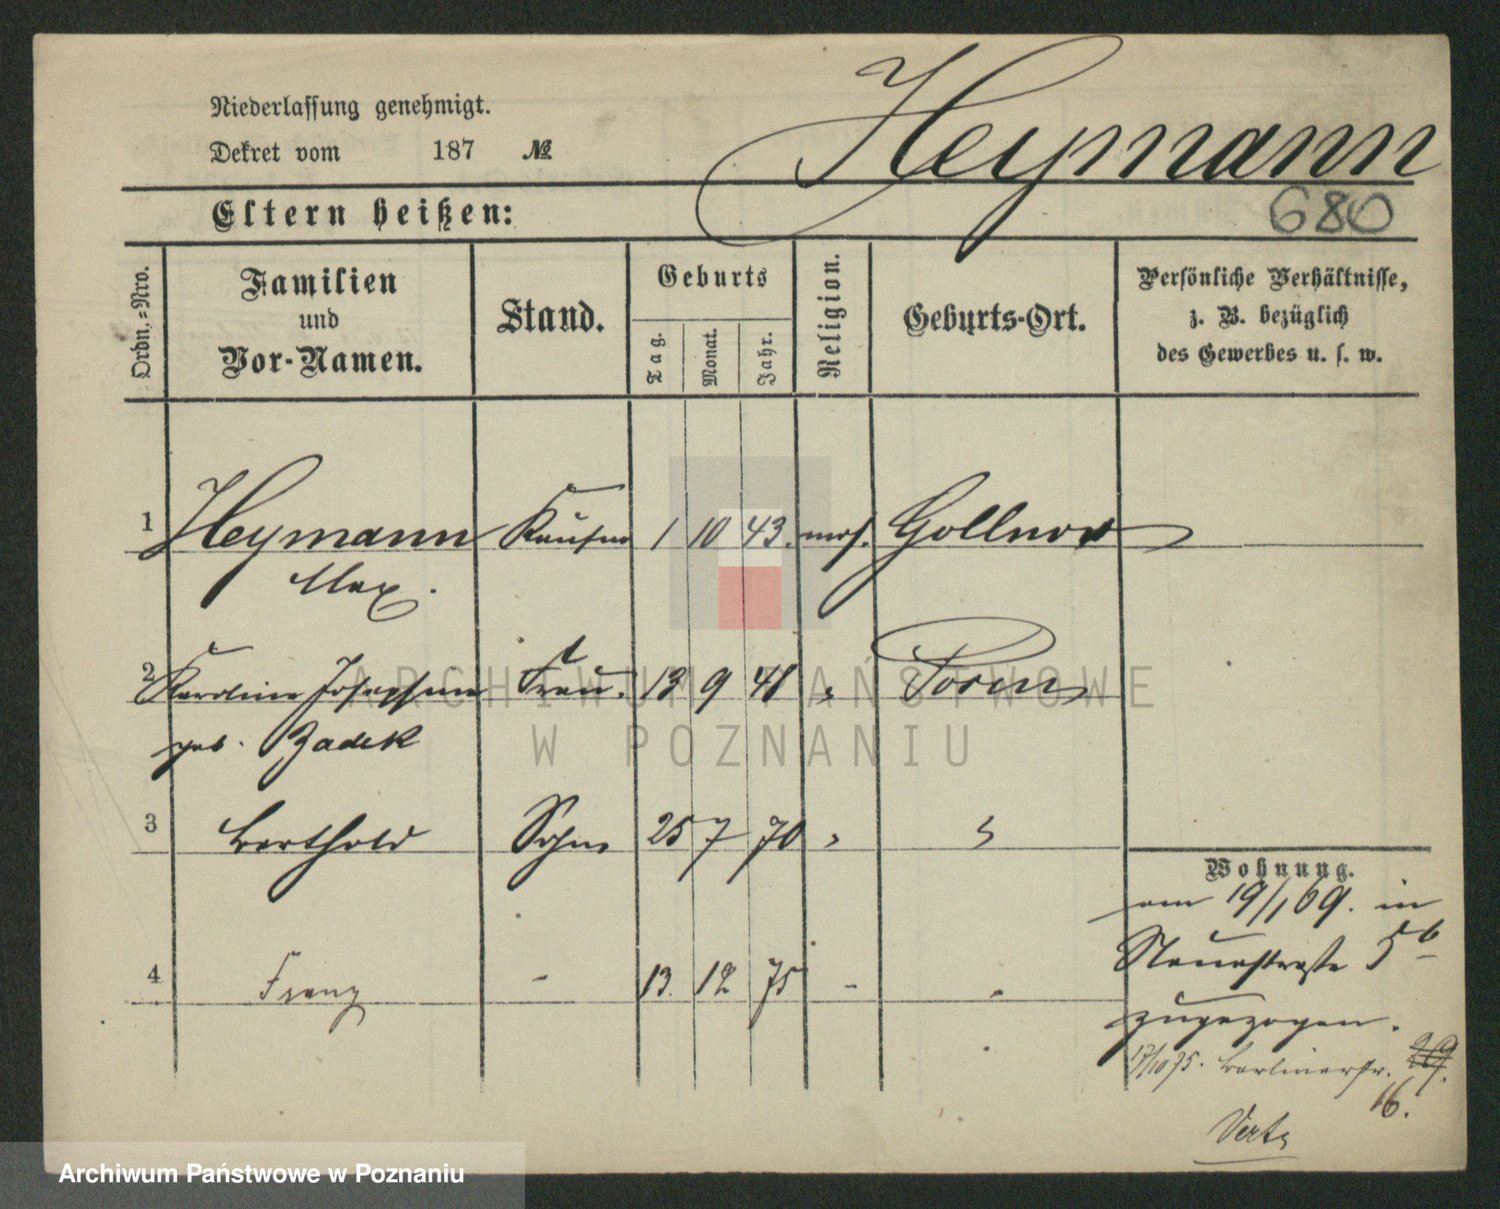 Niederlassung genehmigt.
Dekret vom 187 №
Heymann
680
Eltern heißen:
Ordn.-Nro.
Familien
und
Vor-Namen.
Stand.
Geburts
Tag.
Monat.
Jahr.
Religion.
Geburts-Ort.
Persönliche Verhältnisse,
z. B. bezüglich
des Gewerbes u. s. w.
1 Heymann Kaufm 1 10 43. mos. Gollnow
Max.
2 Karoline Josephine Frau. 13 9 48 " Posen
geb. Zadek
3 Berthold Sohn 25 7 70 " "
Wohnung.
am 19/1 69. in
Neuestraße 5b
zugezogen.
4 Franz - 13. 12 75 - "
17/10 75. Berlinerstr.
16.
ARCHIWUM PAŃSTWOWE
W POZNANIU
Archiwum Państwowe w Poznaniu